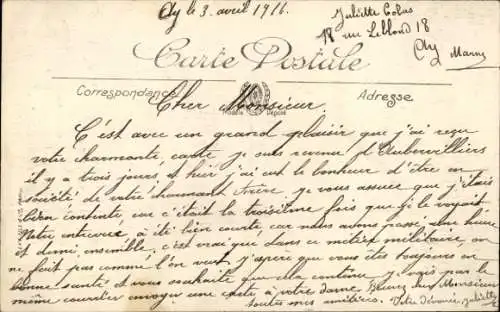 Ay le 3 avril 1916.
Juliette Colas
18 rue Leblond 18
Ay
Marne
Carte Postale
Correspondance
Adresse
Modèle Déposé
Cher Monsieur.
C'est avec un grand plaisir que j'ai reçu
votre charmante carte je suis revenue d'Aubervilliers
il y a trois jours, et hier j'ai eut le bonheur d'être en
société de votre charmant frère, je vous assure que j'étais
bien contente, car c'était la troisième fois que je le voyait
Notre entrevue a été bien courte, car nous avons passé une heure
et demi ensemble, c'est vrai que dans ce métier militaire, on
ne fait pas comme l'on veut j'espère que vous êtes toujours en
bonne santé et vous souhaite que cela continue je vais par le
même courrier envoyer une carte à votre dame. Monsieur
toutes mes amitiées. Votre dévouée Juliette